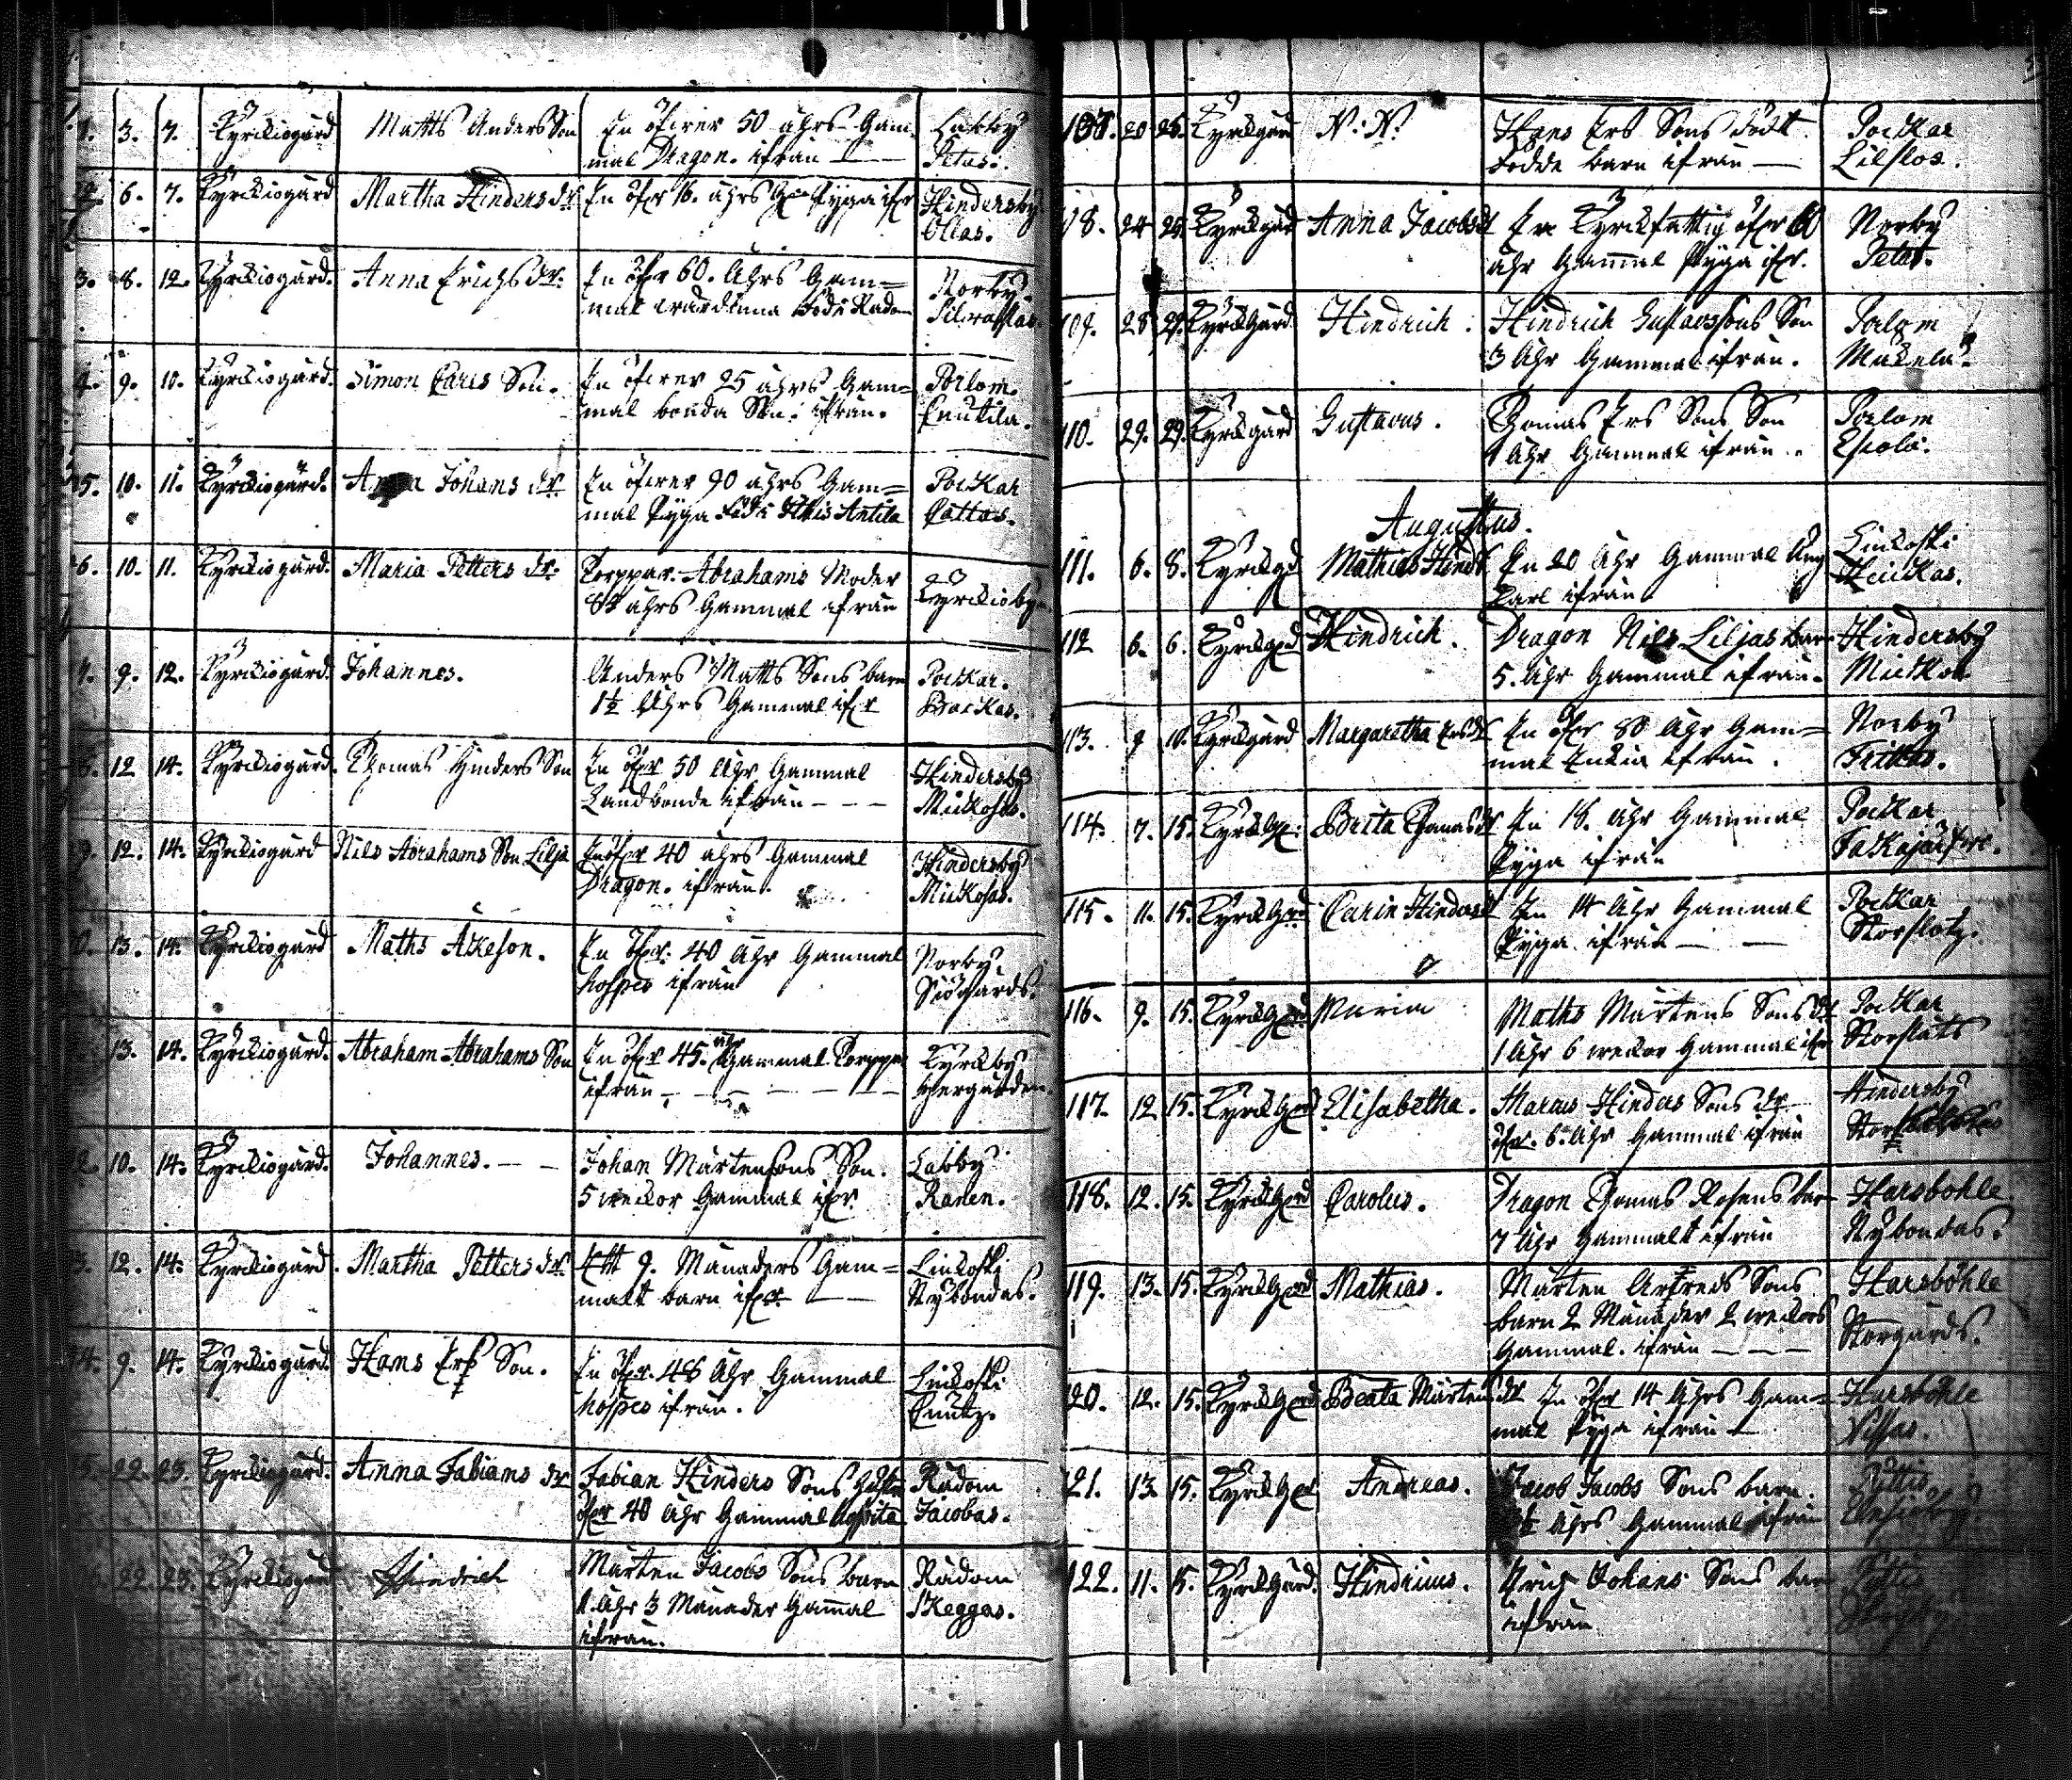 1. 3. 7. Kyrckiogård Matts Anders Son En öfwer 50 åhrs Gam-
mal Dragon. ifrån — Labby
Petas.
2. 6. 7. Kyrckiogård Martha Hinders dr. En öfr 16. åhrs Gl Pyga ifr Hindersby
Ollas.
3. 8. 12. Kyrckiogård. Anna Erichs dr. En öfr 60. Åhrs Gam=
mal Norby
4. 9. 10. Kyrckiogård. Simon Carls Son. En öfwer 25 åhrs Gam=
mal bonda Son. ifrån. Porlom.
Cnutila.
5. 10. 11. Kyrckiogård. Anna Johans dr. En öfwer 90 åhrs Gam=
mal Pyga Antila Pockar
Cattas.
6. 10. 11. Kyrckiogård. Maria Petters dr. Torppar. Abrahams Moder
åhrs Gammal ifrån Kyrckioby
9. 12. Kyrckiogård. Johannes. Anders Matts Sons barn
1½ Åhrs Gammal ifr Pockar.
Backas.
12 14. Kyrckiogård. Thomas Hinders Son En öfr 50 Åhr Gammal
Landbonde ifrån - - - Hindersby
Mickosas.
9. 12. 14. Kyrckiogård Nils Abrahams Son Lilja En öfr 40 åhrs Gammal
Dragon. ifrån. Hindersby
Mickosas.
0. 13. 14. Kyrckiogård Maths Åkeson. En öfr. 40 Åhr Gammal
hospes ifrån Norby
Siögårds.
13. 14. Kyrckiogård. Abraham Abrahams Son En öfr 45. åhr Gammal Torppar
ifrån - - - Kyrckby
2. 10. 14. Kyrckiogård. Johannes. — — Johan Mårtensons Son.
5 weckor Gammal ifr. Labby
Ranen.
3. 12. 14. Kyrckiogård. Martha Petters dr. Ett 9. Månaders Gam=
malt barn ifr. — Linkoski
Nybondas.
14. 9. 14. Kyrckiogård. Hans Ers Son. En öfr. 48 Åhr Gammal
hospes ifrån. Linkoski
Cnutz.
5. 22. 23. Kyrckiogård. Anna Fabians dr Fabian Hinders Sons Hustru
öfr 40 Åhr Gammal hospita Rådom
Jacobas.
22. 23. Kyrckiogård Hindrich Mårten Jacobs Sons barn
1. Åhr 3 Månader Gammal
ifrån. Rådom
Skeggas.
20 25. Kyrckgård N: N: Hans Ers Sons dödt
födde barn ifrån — Pockar
Lilslos.
108. 24 25. Kyrckgård Anna Jacobs dr En Kyrckfattig öfr 60
åhr Gammal Pyga ifr. Norby
109. 28 29. Kyrckgård Hindrich. Hindrich Gustavssons Son
3 Åhr Gammal ifrån. Porlom
Mäkelä.
110. 29. 29. Kyrckgård Gustavus. Thomas Ers Sons Son
1 Åhr Gammal ifrån. Porlom
Eskola.
Augustus.
111. 6. 8. Kyrckgd Mathias Hinds En 20 Åhr Gammal Ung
Karl ifrån Linkoski
Heickas.
112 6. 6. Kyrckgrd Hindrich. Dragon Nils Liljas barn
5. Åhr Gammal ifrån. Hindersby
Mickos
113. 9 10. Kyrckgård Margaretha Ers dr En öfr 80 Åhr Gam=
mal Enkia ifrån. Norby
114. 7. 15. Kyrckg: Brita Thomas dr En 18. Åhr Gammal
Pyga ifrån Pockar
115. 11. 15. Kyrckgrd Carin Hinders dr En 14 Åhr Gammal
Pyga ifrån — — Pockar
Storslotz.
116. 9. 15. Kyrckgrd Maria Maths Mårtens Sons dr
1 Åhr 6 weckor Gammal ifr Pockar
Storslots
117. 12 15. Kyrckgrd Elisabetha. Marcus Hinders Sons dr
öfr. 6. Åhr Gammal ifrån Hindersby
118. 12. 15. Kyrckgrd Carolus. Dragon Thomas Rosens barn
7 Åhr Gammalt ifrån Harsböhle
Nybondas.
119. 13. 15. Kyrckgrd Mathias. Mårten Sons
barn 2 Månader 2 weckors
Gammal. ifrån — — — Harsböhle
Storgårds.
120. 12. 15. Kyrckgrd Beata Mårtens dr En öfr 14 Åhrs Gam=
mal Pyga ifrån — Harsböhle
Nissas.
121. 13. 15. Kyrckgrd Andreas. Jacob Jacobs Sons barn.
Åhrs Gammal ifrån
122. 11. 15. Kyrckgård. Hindricus. Erich Johans Sons barn
ifrån